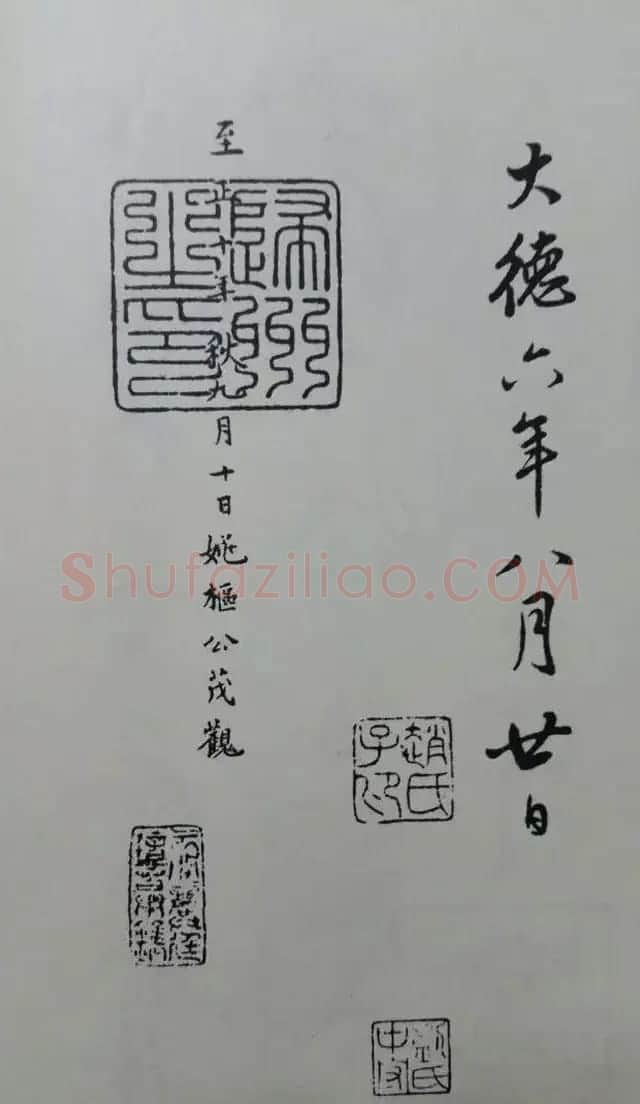 大德六年八月廿日
趙氏子印
至正十年秋九月十日姚樞公茂觀
Shufaziliao.COM